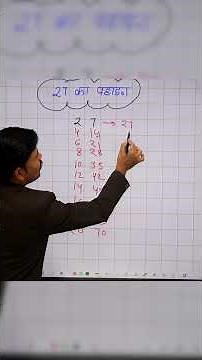 27 का पहाड़ा
27 का पहाड़ा
2 7 → 27
4 14
6 21
8 28
10 35
12 42
14 4
70